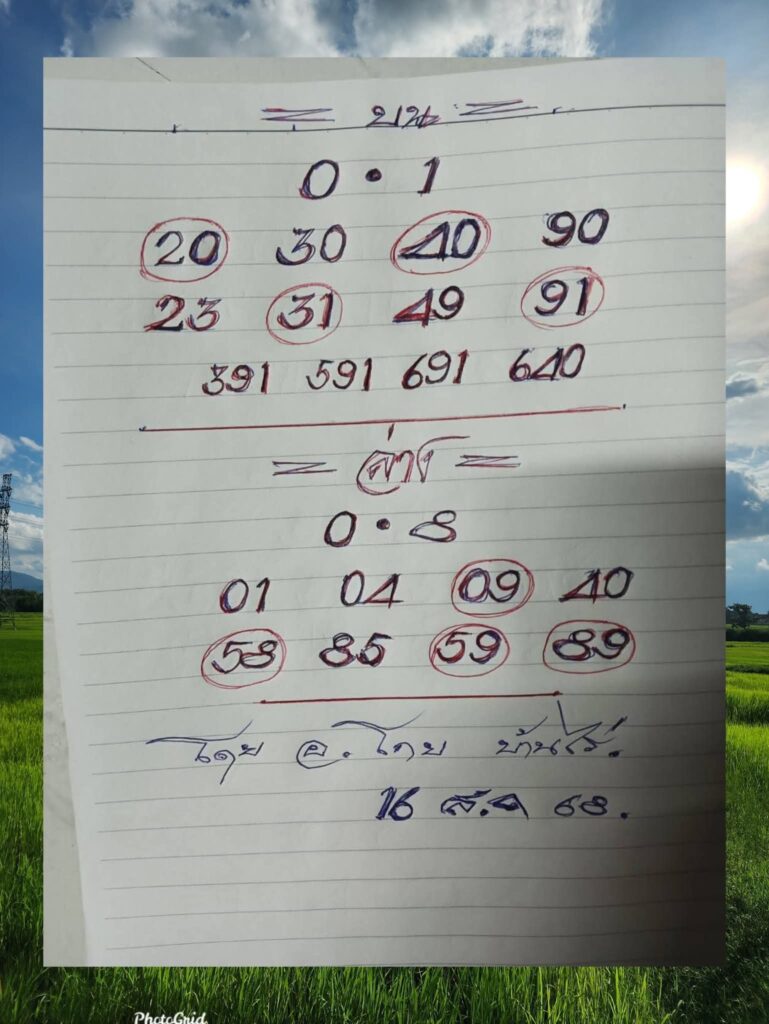 = บน =
0 • 1
20 30 40 90
23 31 49 91
391 591 691 640
= ล่าง =
0 • 8
01 04 09 40
58 85 59 89
โดย อ. โกย บ้านไร่.
16 ส.ค 68.
PhotoGrid